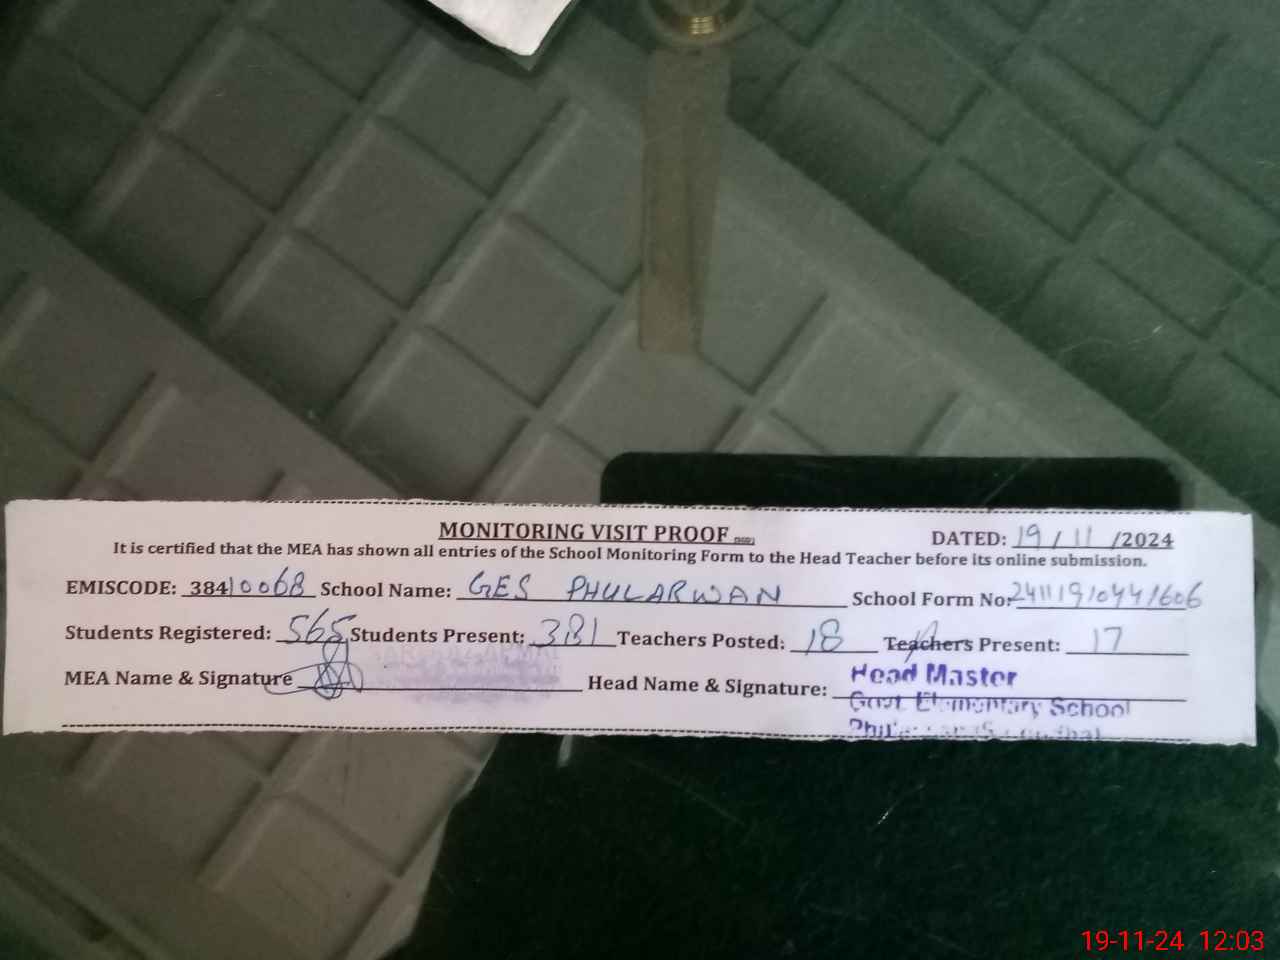 MONITORING VISIT PROOF
DATED: 19/11/2024
It is certified that the MEA has shown all entries of the School Monitoring Form to the Head Teacher before its online submission.
EMISCODE: 38410068 School Name: GES PHULARWAN School Form No: 24111910441606
Students Registered: 565 Students Present: 381 Teachers Posted: 18 Teachers Present: 17
MEA Name & Signature Head Name & Signature: Head Master
Govt. Elementary School
19-11-24 12:03